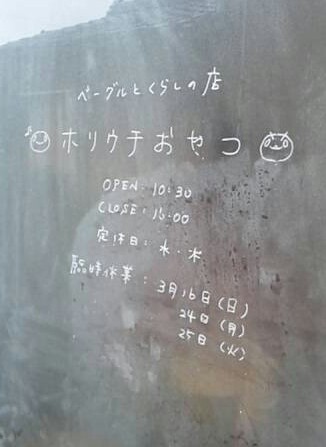 ベーグルとくらしの店
ホリウチおやつ
OPEN: 10:30
CLOSE: 16:00
定休日: 水・木
臨時休業: 3月16日(日)
24日(月)
25日(火)